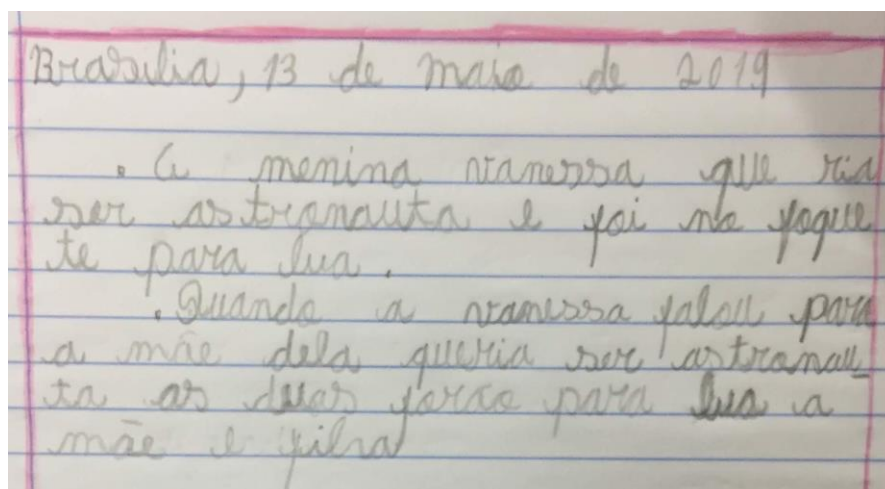 Brasilia, 13 de maio de 2019
. A menina vanessa que ria
ser astronauta e foi no fogue
te para lua.
. Quando a vanessa falou para
a mãe dela queria ser astronau_
ta as duas forão para lua a
mãe e filha